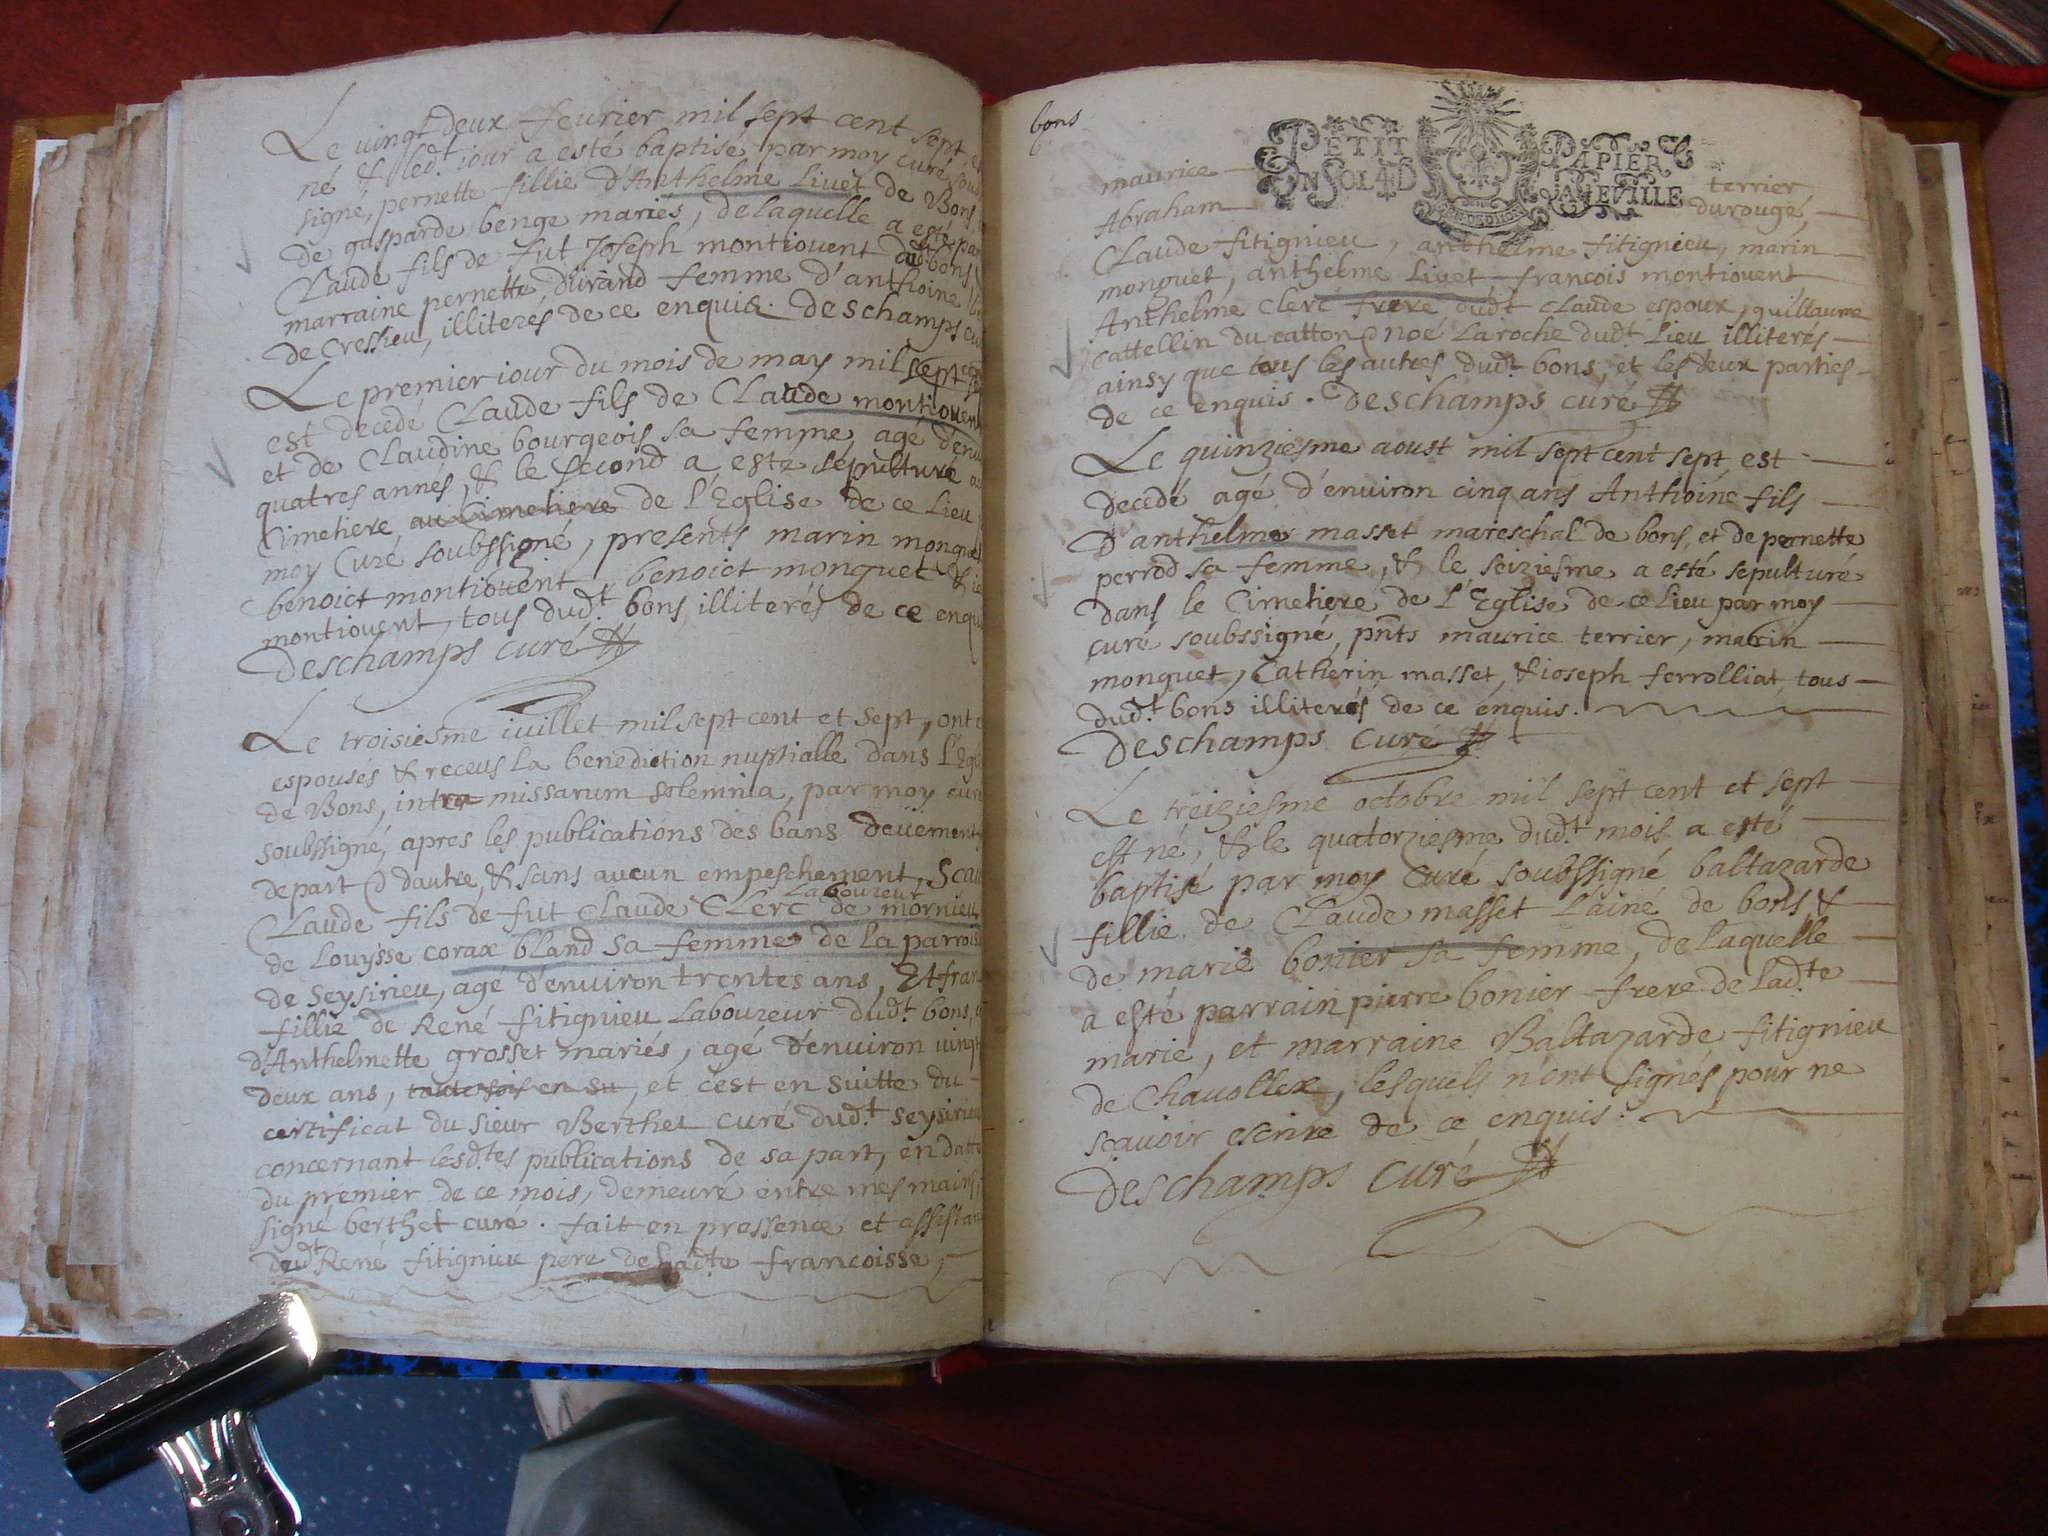 Le vingt deux fevrier mil sept cent sept est
né & led.t iour a esté baptisé par moy curé soub
signé, pernette fillie d'Anthelme Livet de Bons,
de gasparde benge mariés, de laquelle a esté par
Claude fils de fut Joseph montiouent dud.t bons
marraine pernette durand femme d'anthoine
de Cressieu, illiterés de ce enquis. Deschamps cu
Le premier iour du mois de may mil sept cent
est decedé Claude fils de Claude montiouent
et de Claudine bourgeois sa femme, agé d'env
quatres annés, & le second a esté sepulturé
Cimetiere au Cimetiere de l'Eglise de ce Lieu
moy Curé soubssigné, presents marin monguet
benoict montiouent, benoict monguet &
montiouent, tous dud.t bons, illiterés de ce enqu
Deschamps curé
Le troisiesme iuillet mil sept cent et sept, ont
espousés & receus la benediction nuptialle dans l'Egl
de Bons, intra missarum solemnia, par moy curé
soubssigné, apres les publications des bans deüement
de part & dautre, & sans aucun empeschement, Scau
Laboureur
Claude fils de fut Claude Clerc de mornieu
de Louysse corax bland sa femme de la parrois
de Seysirieu, agé d'environ trentes ans, Et fran
fillie de René fitignieu Laboureur dud.t bons,
d'Anthelmette grosset mariés, agé d'environ vingt
deux ans, toutesfois en su, et c'est en suitte du
certificat du sieur Berthet curé dud.t seysirieu
concernant lesd.tes publications de sa part, en datte
du premier de ce mois, demeuré entre mes mains,
signé berthet curé. fait en pressence et assistan
dud.t René fitignieu pere de lad.te francoisse,
bons
PETIT PAPIER
UN SOL 4 D LA FEUILLE
maurice terrier
Abraham durougé,
Claude fitignieu, anthelme fitignieu, marin
monguet, anthelme Livet francois montiouent
Anthelme Clerc frere dud.t Claude espoux, guillaume
cattellin du catton & noé Laroche dud.t Lieu illiterés
ainsy que tous les autres dud.t bons, et les deux parties
de ce enquis. Deschamps curé
Le quinziesme aoust mil sept cent sept, est
decedé agé d'environ cinq ans Anthoine fils
d'anthelme masset mareschal de bons, et de pernette
perrod sa femme, & le seiziesme a esté sepulturé
dans le Cimetiere de l'Eglise de ce lieu par moy
curé soubssigné, pñts maurice terrier, marin
monguet, Catherin masset, & ioseph ferrolliat, tous
dud.t bons illiterés de ce enquis.
Deschamps curé
Le treiziesme octobre mil sept cent et sept
est né, & le quatorziesme dud.t mois a esté
baptisé par moy Curé soubssigné baltazarde
fillie de Claude masset Lainé de bons &
de marie bonier sa femme, de laquelle
a esté parrain pierre bonier frere de lad.te
marie, et marraine Baltazarde fitignieu
de Chavollex, lesquels n'ont signés pour ne
scavoir escrire de ce enquis.
Deschamps curé